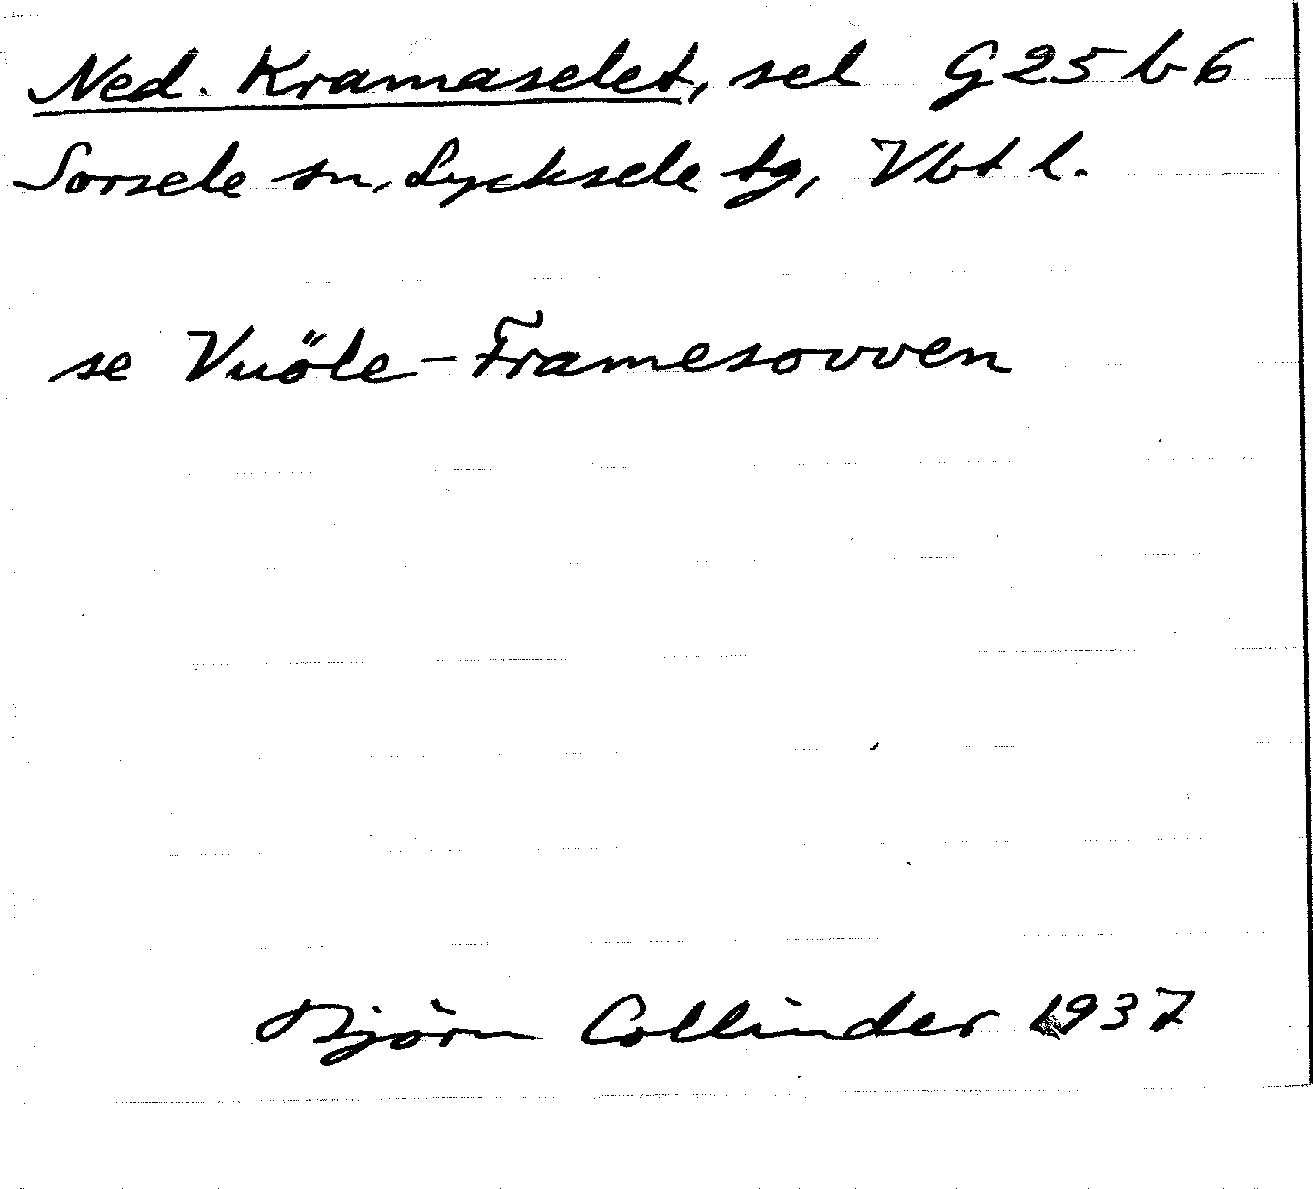 Ned. Kramaselet, sel G25b6
Sorsele sn, Lycksele tg, Vbt l.
se Vuöle-Framesovven
Björn Collinder 1937